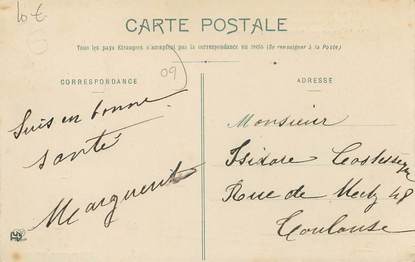 10€
CARTE POSTALE
Tous les pays Etrangers n'acceptent pas la correspondance au recto (Se renseigner à la Poste)
09
CORRESPONDANCE
ADRESSE
Suis en bonne
santé
Marguerite
Monsieur
Isidore
Rue de Metz 48
Toulouse